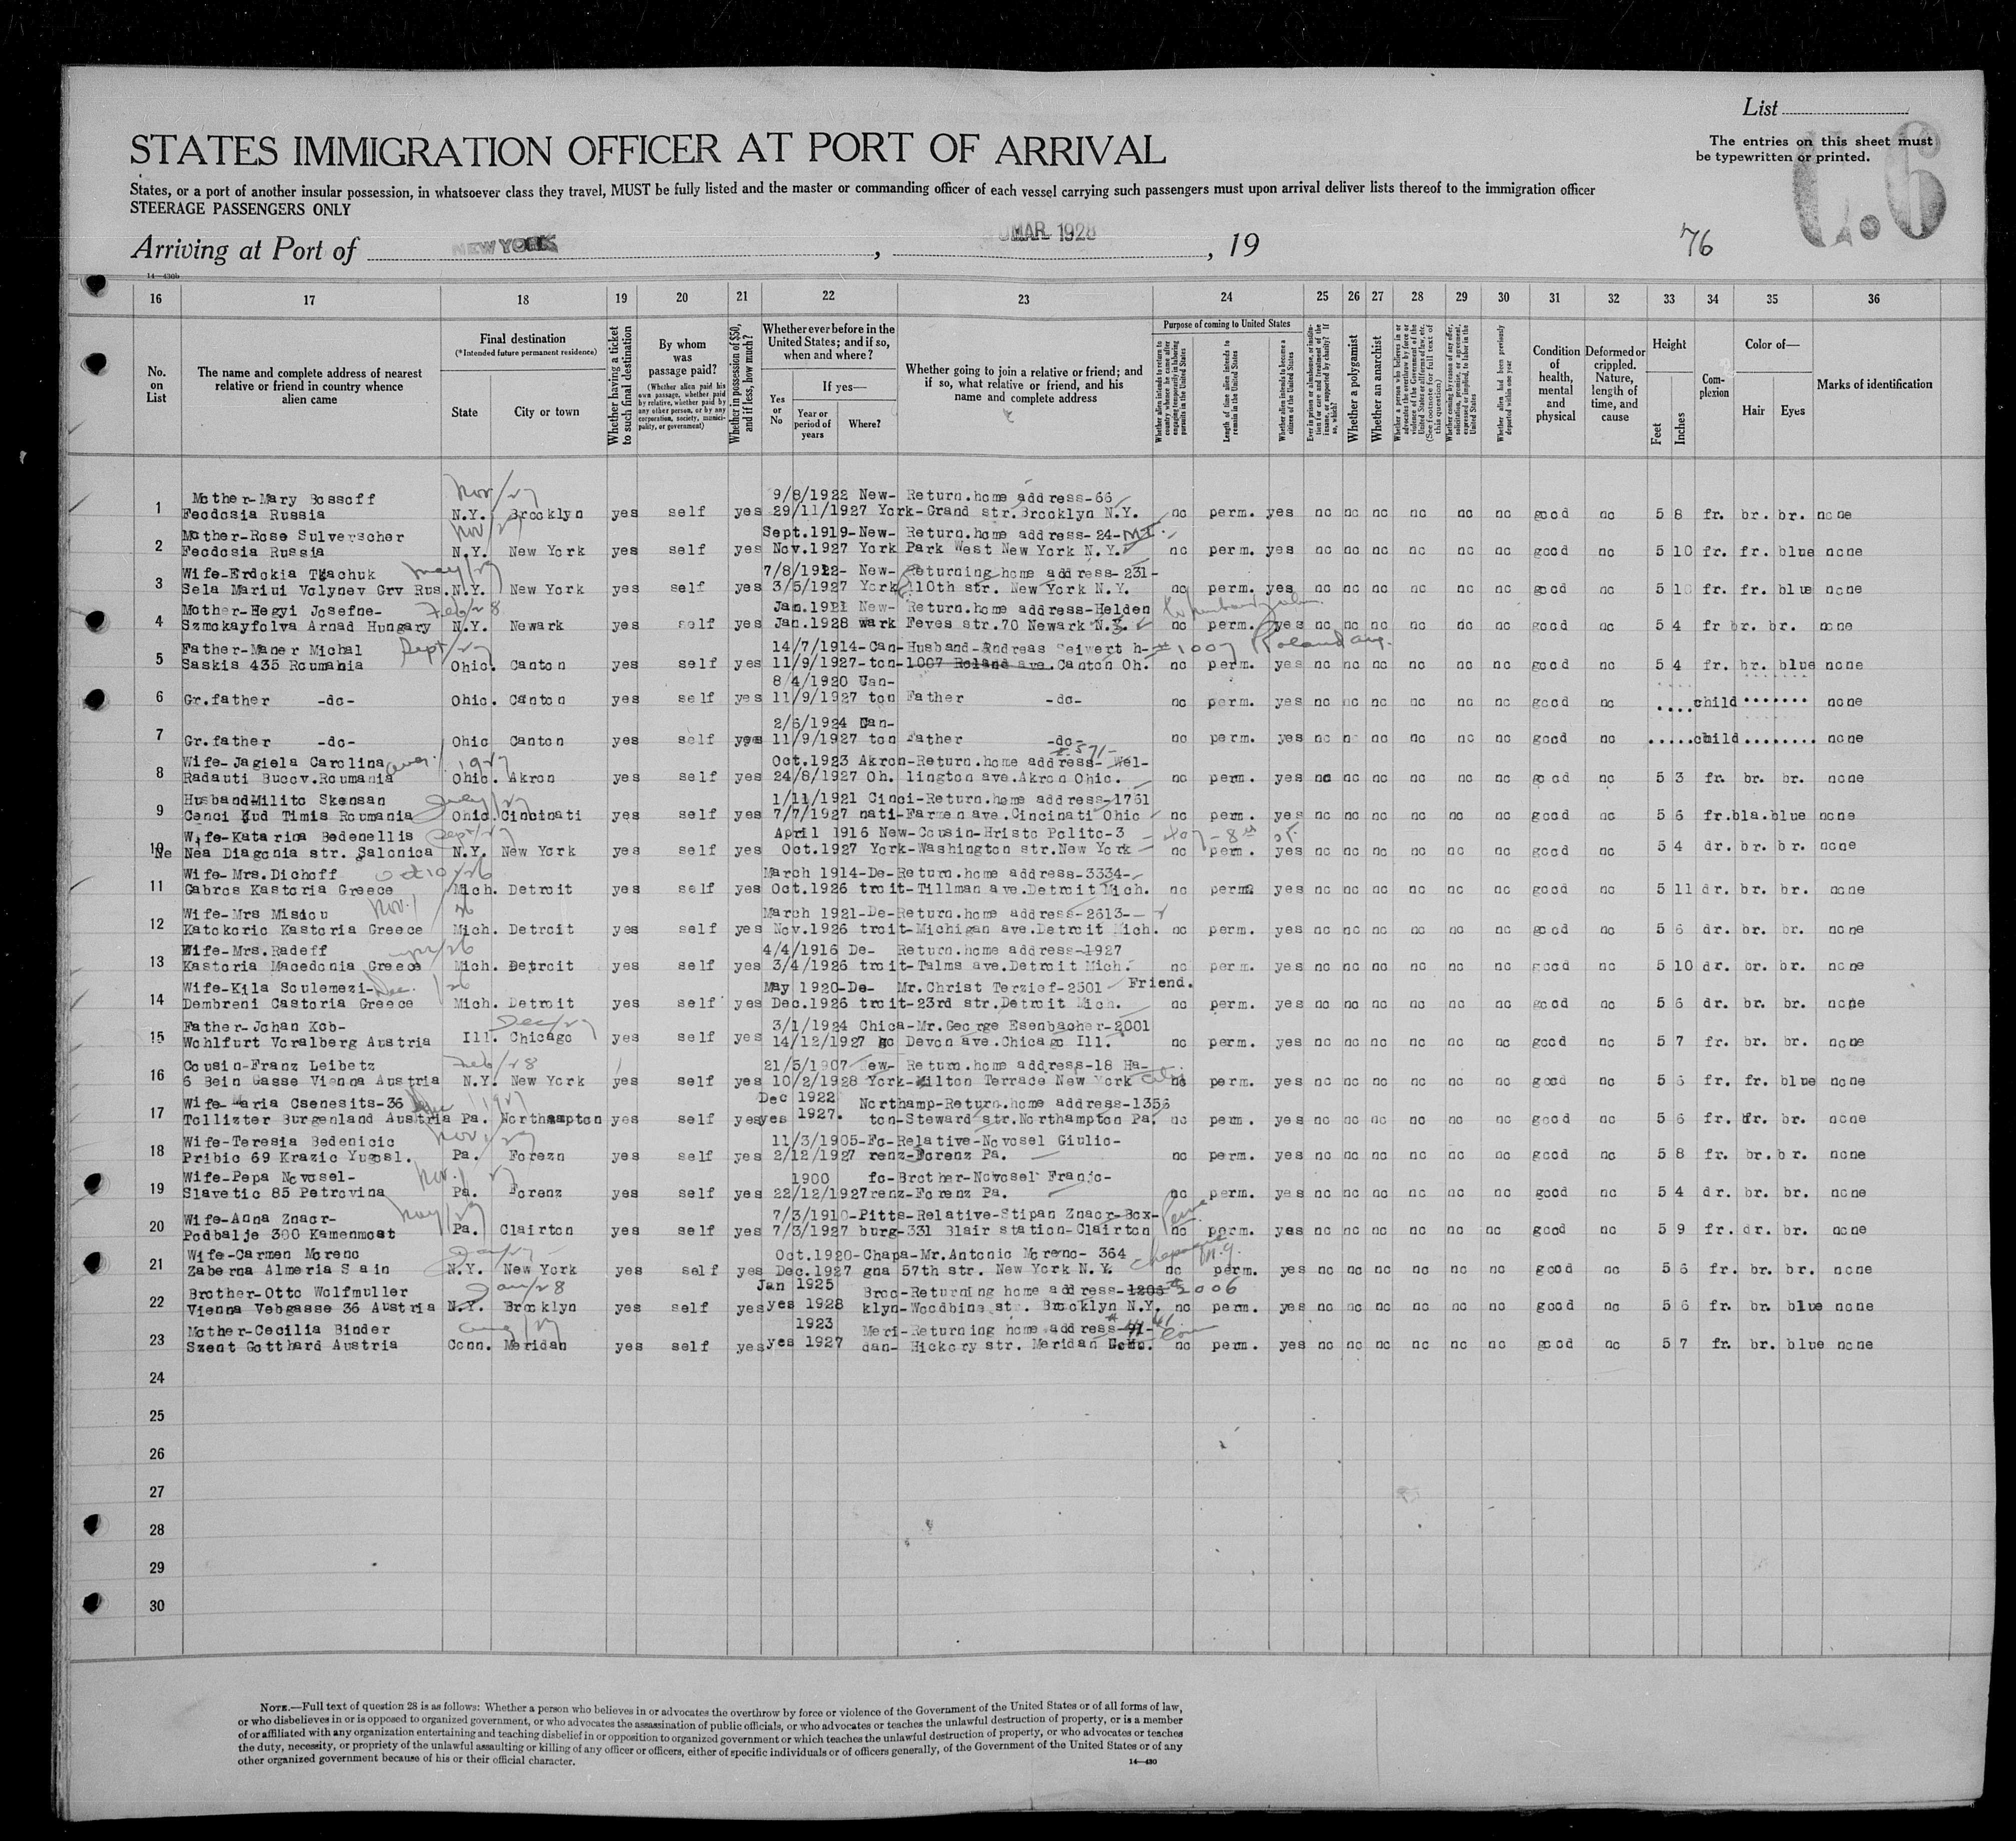 List
The entries on this sheet must
be typewritten or printed.
C.6
STATES IMMIGRATION OFFICER AT PORT OF ARRIVAL
States, or a port of another insular possession, in whatsoever class they travel, MUST be fully listed and the master or commanding officer of each vessel carrying such passengers must upon arrival deliver lists thereof to the immigration officer
STEERAGE PASSENGERS ONLY
Arriving at Port of NEW YORK, MAR 1928, 19 76
14—430b
16 17 18 19 20 21 22 23 24 25 26 27 28 29 30 31 32 33 34 35 36
No. on List
The name and complete address of nearest relative or friend in country whence alien came
Final destination
(*Intended future permanent residence)
State
City or town
Whether having a ticket to such final destination
By whom was passage paid?
(Whether alien paid his own passage, whether paid by relative, whether paid by any other person, or by any corporation, society, municipality, or government)
Whether in possession of $50, and if less, how much?
Whether ever before in the United States; and if so, when and where?
Yes or No
If yes—
Year or period of years
Where?
Whether going to join a relative or friend; and if so, what relative or friend, and his name and complete address
Purpose of coming to United States
Whether alien intends to return to country whence he came after engaging temporarily in laboring pursuits in the United States
Length of time alien intends to remain in the United States
Whether alien intends to become a citizen of the United States
Ever in prison or almshouse, or institution for care and treatment of the insane, or supported by charity? If so, which?
Whether a polygamist
Whether an anarchist
Whether a person who believes in or advocates the overthrow by force or violence of the Government of the United States or all forms of law, etc. (See footnote for full text of this question)
Whether coming by reason of any offer, solicitation, promise, or agreement, expressed or implied, to labor in the United States
Whether alien had been previously deported within one year
Condition of health, mental and physical
Deformed or crippled. Nature, length of time, and cause
Height
Feet
Inches
Complexion
Color of—
Hair
Eyes
Marks of identification
Nov/27
Mother-Mary Bossoff 9/8/1922 New- Return.home address-66
1 Feodosia Russia N.Y. Brooklyn yes self yes 29/11/1927 York-Grand str.Brooklyn N.Y. no perm. yes no no no no no no good no 5 8 fr. br. br. none
Nov/27
Mother-Rose Sulverscher Sept.1919-New- Return.home address-24-
2 Feodosia Russia N.Y. New York yes self yes Nov.1927 York Park West New York N.Y. no perm. yes no no no no no no good no 5 10 fr. fr. blue none
May/27
Wife-Erdokia Tkachuk 7/8/1912- New- Returning home address-231-
3 Sela Mariui Volynev Grv Rus. N.Y. New York yes self yes 3/5/1927 York 110th str. New York N.Y. no perm. yes no no no no no no good no 5 10 fr. fr. blue none
Feb/28
Mother-Hegyi Josefne- Jan.1921 New- Return.home address-Helden
4 Szmokayfolva Arnad Hungary N.Y. Newark yes self yes Jan.1928 wark Feves str.70 Newark N.J. no perm. yes no no no no no no good no 5 4 fr br. br. none
Sept/27
Father-Maner Michal 14/7/1914-Can-Husband-Andreas Seiwert h- #1007 Roland av.
5 Saskis 435 Roumania Ohio. Canton yes self yes 11/9/1927-ton-1007 Roland ave.Canton Oh. no perm. yes no no no no no no good no 5 4 fr. br. blue none
8/4/1920 Can-
6 Gr.father -do- Ohio. Canton yes self yes 11/9/1927 ton Father -do- no perm. yes no no no no no no good no ....child....... none
2/5/1924 Can-
7 Gr.father -do- Ohio Canton yes self yes 11/9/1927 ton Father -do- no perm. yes no no no no no no good no .....child........ none
Aug./1927 #571-
Wife-Jagiela Carolina Oct.1923 Akron-Return.home address- Wel-
8 Radauti Bucov.Roumania Ohio. Akron yes self yes 24/8/1927 Oh. lington ave.Akron Ohio. no perm. yes no no no no no no good no 5 3 fr. br. br. none
July/27
HusbandMilito Skensan 1/11/1921 Cinci-Return.home address-1761
9 Cenci Kud Timis Roumania Ohio. Cincinati yes self yes 7/7/1927 nati-Farmen ave.Cincinati Ohio no perm. yes no no no no no no good no 5 6 fr.bla.blue none
Sept/27
Wife-Katarina Bedenellis April 1916 New-Cousin-Hristo Polito-3 407-8th
10 Nea Diagonia str. Salonica N.Y. New York yes self yes Oct.1927 York-Washington str.New York no perm. yes no no no no no no good no 5 4 dr. br. br. none
Oct 10/26
Wife-Mrs.Dichoff March 1914-De-Return.home address-3334-
11 Gabros Kastoria Greece Mich. Detroit yes self yes Oct.1926 troit-Tillman ave.Detroit Mich. no perm. yes no no no no no no good no 5 11 dr. br. br. none
Nov./26
Wife-Mrs Misiou March 1921-De-Return.home address-2613-
12 Katokoric Kastoria Greece Mich. Detroit yes self yes Nov.1926 troit-Michigan ave.Detroit Mich. no perm. yes no no no no no no good no 5 6 dr. br. br. none
Wife-Mrs.Radeff 4/4/1916 De- Return.home address-1927
13 Kastoria Macedonia Greece Mich. Detroit yes self yes 3/4/1926 troit-Talms ave.Detroit Mich. no perm. yes no no no no no no good no 5 10 dr. br. br. none
Dec./26
Wife-Kila Soulemezi- May 1920-De- Mr.Christ Terzief-2501 Friend.
14 Dembreni Castoria Greece Mich. Detroit yes self yes Dec.1926 troit-23rd str.Detroit Mich. no perm. yes no no no no no no good no 5 6 dr. br. br. none
Dec/27
Father-Johan Kob- 3/1/1924 Chica-Mr.George Esenbacher-2001
15 Wohlfurt Voralberg Austria Ill. Chicago yes self yes 14/12/1927 go Devon ave.Chicago Ill. no perm. yes no no no no no no good no 5 7 fr. br. br. none
Feb/28
Cousin-Franz Leibetz 21/5/1907 New- Return.home address-18 Ha-
16 6 Bein Gasse Vienna Austria N.Y. New York yes self yes 10/2/1928 York-Milton Terrace New York City no perm. yes no no no no no no good no 5 6 fr. fr. blue none
1927
Wife-Maria Csenesits-36 Dec 1922 Northamp-Return.home address-1356
17 Tollizter Burgenland Austria Pa. Northampton yes self yes yes 1927. ton-Steward str.Northampton Pa. no perm. yes no no no no no no good no 5 6 fr. fr. br. none
Nov./27
Wife-Teresia Bedenicic 11/3/1905-Fo-Relative-Novosel Giulio-
18 Pribic 69 Krazic Yugosl. Pa. Forezn yes self yes 2/12/1927 renz-Forenz Pa. no perm. yes no no no no no no good no 5 8 fr. br. br. none
Nov./27
Wife-Pepa Novosel- 1900 fo-Brother-Novosel Franjo-
19 Slavetic 85 Petrovina Pa. Forenz yes self yes 22/12/1927renz-Forenz Pa. no perm. yes no no no no no no good no 5 4 dr. br. br. none
May/27
Wife-Anna Znaor- 7/3/1910-Pitts-Relative-Stipan Znaor-Box-
20 Podbalje 300 Kamenmost Pa. Clairton yes self yes 7/3/1927 burg-331 Blair station-Clairton Penna no perm. yes no no no no no no good no 5 9 fr. dr. br. none
Wife-Carmen Moreno Oct.1920-Chapa-Mr.Antonio Moreno- 364
21 Zaberna Almeria S ain N.Y. New York yes self yes Dec.1927 gna 57th str. New York N.Y. no perm. yes no no no no no no good no 5 6 fr. br. br. none
Jan/28
Brother-Otto Wolfmuller Jan 1925 Broo-Returning home address-1206 #2006
22 Vienna Vebgasse 36 Austria N.Y. Brooklyn yes self yes yes 1928 klyn-Woodbine st . Brooklyn N.Y. no perm. yes no no no no no no good no 5 6 fr. br. blue none
Aug/27
Mother-Cecilia Binder 1923 Meri-Returning home address-91-
23 Szent Gotthard Austria Conn. Meridan yes self yes yes 1927 dan- Hickory str. Meridan Conn no perm. yes no no no no no no good no 5 7 fr. br. blue none
24
25
26
27
28
29
30
NOTE.—Full text of question 28 is as follows: Whether a person who believes in or advocates the overthrow by force or violence of the Government of the United States or of all forms of law,
or who disbelieves in or is opposed to organized government, or who advocates the assassination of public officials, or who advocates or teaches the unlawful destruction of property, or is a member
of or affiliated with any organization entertaining and teaching disbelief in or opposition to organized government or which teaches the unlawful destruction of property, or who advocates or teaches
the duty, necessity, or propriety of the unlawful assaulting or killing of any officer or officers, either of specific individuals or of officers generally, of the Government of the United States or of any
other organized government because of his or their official character.
14—430